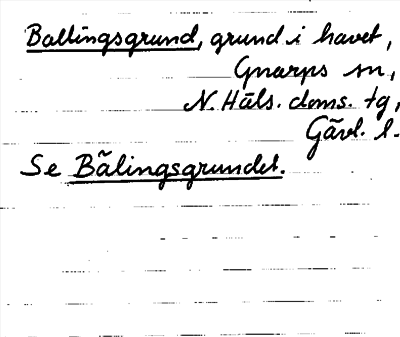 Ballingsgrund, grund i havet,
Gnarps sn,
N. Häls. doms. tg,
Gävl. l.
Se Bålingsgrundet.